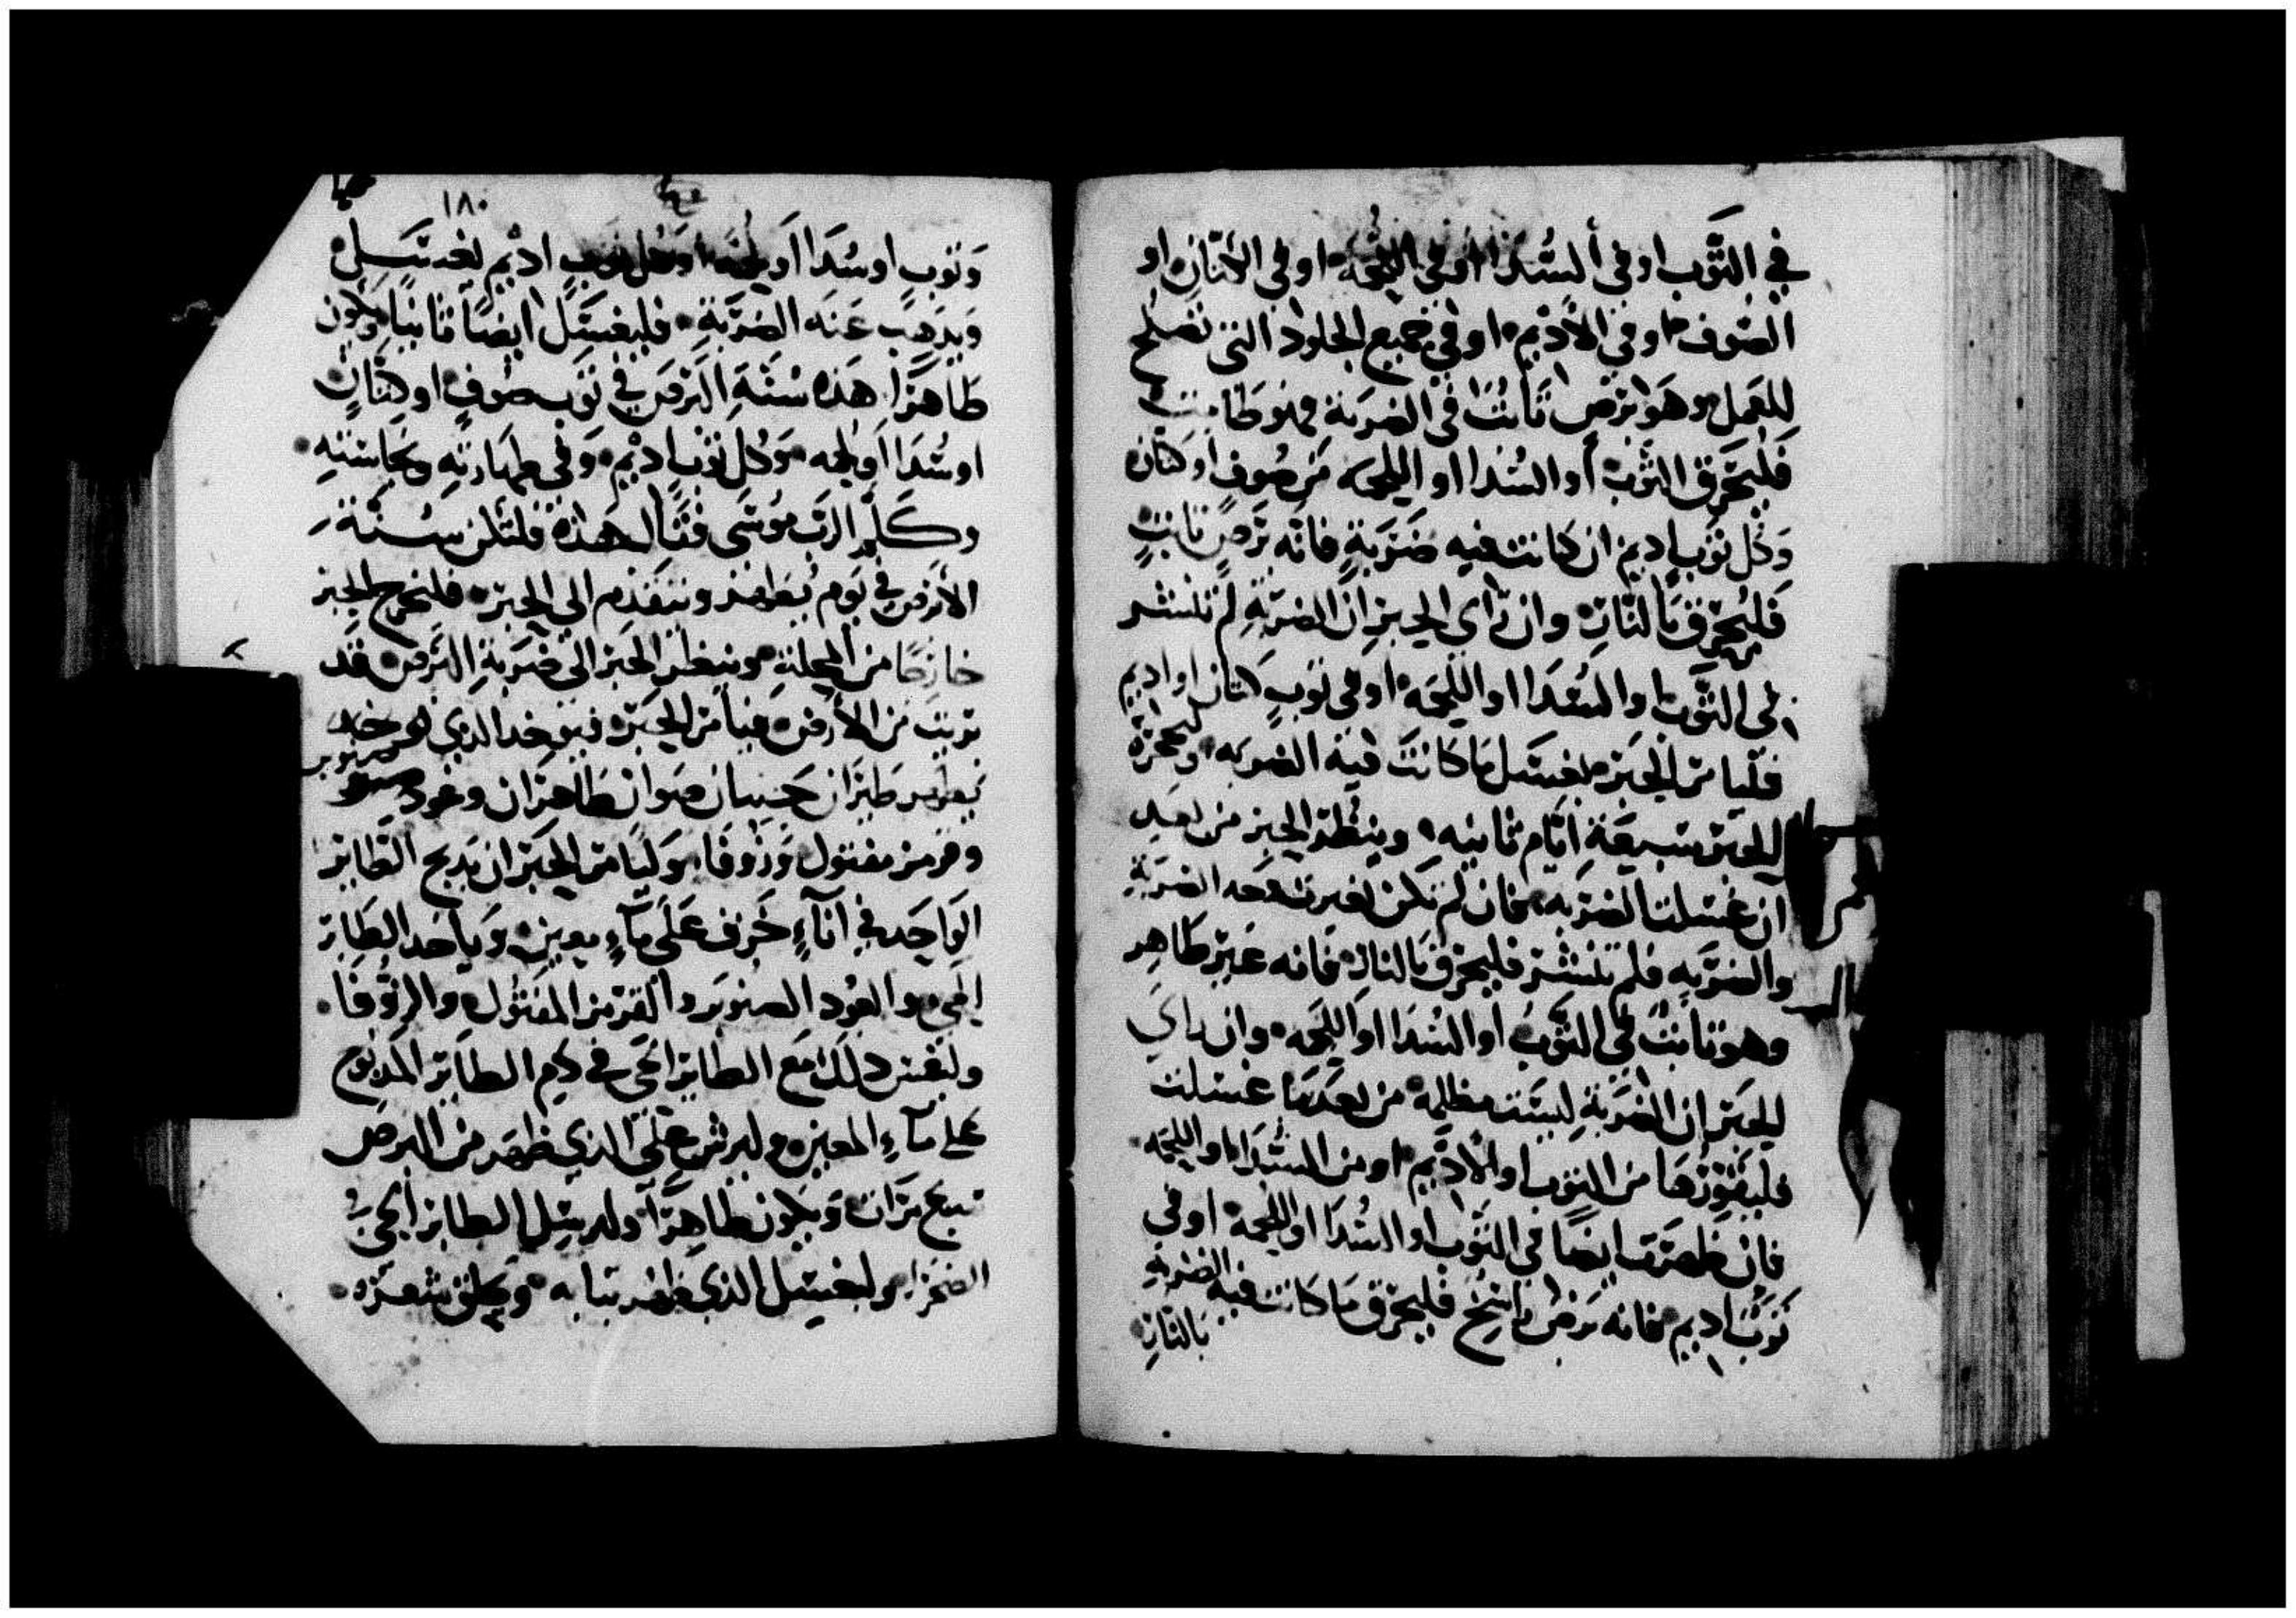 في الثوب او في السدا او في اللحمه او في الكتان او
الصوف او في الاديم او في جميع الجلود التي تصلح
للعمل وهو برص ثابت في الضربة فهو طامث
فليحرق الثوب او السدا او اللحمه من صوف او كتان
وكل ثوب اديم ان كانت فيه ضربة فانه برص ثابت
فليحرق بالنار وان راى الحبر ان الضربة لم تنتشر
في الثوب او السدا او اللحمه او في ثوب كتان او اديم
فليامر الحبر يغسل ما كانت فيه الضربه وليحجزه
الحبر سبعة ايام ثانيه وينظر الحبر من بعد
ان غسلت الضربه فان لم تكن تغيرت الضربة
والضربه فلم تنتشر فليحرق بالنار فانه غير طاهر
وهو ثابت في الثوب او السدا او اللحمه وان راي
الحبر ان الضربة ليست مظلمه من بعدما غسلت
فليقورها من الثوب او الاديم او من السدا او اللحمه
فان ظهرت ايضا في الثوب او السدا او اللحمه او في
ثوب اديم فانه برص فليحرق ما كانت فيه الضربة
بالنار
١٨٠
وثوب او سدا او لحمه او كل ثوب اديم يغتسل
ويذهب عنه الضربة فليغسل ايضا ثانيا ويكون
طاهرا هذه سنة البرص في ثوب صوف او كتان
او سدا او لحمه وكل ثوب اديم وفي طهارته ونجاسته
وكلم الرب موسى قتالا هذه فلتكن سنة
الابرص في يوم يطهر ويتقدم الى الحبر فليخرج الحبر
خارجا من المحلة وينظر الحبر الى ضربة البرص قد
بريت من الابرص فيامر الحبر فيوخد الدي
يطهر طيران حيان طاهران وعود صنوبر
وقرمز مفتول وزوفا وليامر الحبر ان يدبح الطاير
الواحد في اناء خزف على ماء معين وياخد الطاير
الحي والعود الصنوبر والقرمز المفتول والزوفا
وليغمس دلك مع الطاير الحي في دم الطاير المدبوح
على ماء المعين وليرش على الدي ظهر من البرص
سبع مرات ويكون طاهرا وليرسل الطاير الحي
الصحرا وليغسل الدي طهر تيابه ويحلق شعره